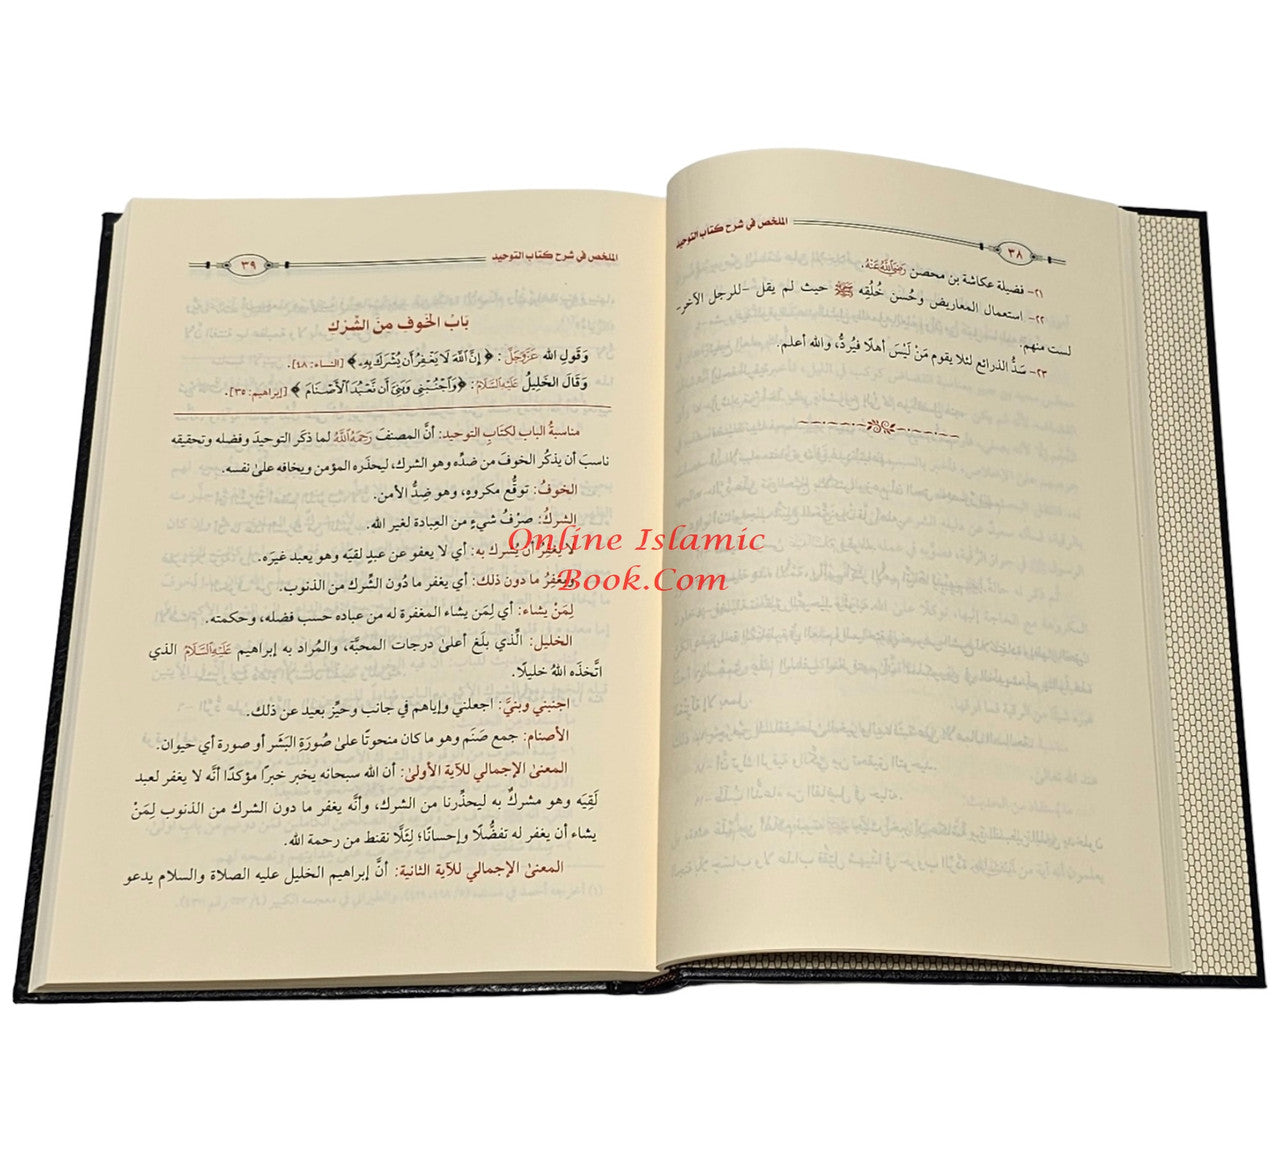 الملخص في شرح كتاب التوحيد
٣٨
٢١- فضيلة عكاشة بن محصن رَضِيَاللَّهُعَنْهُ.
٢٢- استعمال المعاريض وحُسن خُلُقِه ﷺ حيث لم يقل -للرجل الآخر-
لست منهم.
٢٣- سَدُّ الذرائع لئلا يقوم مَنْ لَيْسَ أهلًا فيُردُّ، والله أعلم.
الملخص في شرح كتاب التوحيد
٣٩
بَابُ الخَوفِ مِنَ الشِّرْكِ
وَقَولِ الله عَزَّوَجَلَّ: ﴿إِنَّ ٱللَّهَ لَا يَغْفِرُ أَن يُشْرَكَ بِهِۦ﴾ [النساء: ٤٨].
وَقَالَ الخَلِيلُ عَلَيْهِ ٱلسَّلَامُ: ﴿وَٱجْنُبْنِى وَبَنِىَّ أَن نَّعْبُدَ ٱلْأَصْنَامَ﴾ [إبراهيم: ٣٥].
مناسبةُ الباب لكتَابِ التوحيد: أنَّ المصنفَ رَحِمَهُ ٱللَّهُ لما ذكَر التوحيدَ وفضله وتحقيقه
ناسبَ أن يذكُر الخوفَ من ضدِّه وهو الشرك، ليحذره المؤمن ويخافه علىٰ نفسه.
الخوفُ: توقُّع مكروهٍ، وهو ضِدُّ الأمن.
الشركُ: صرْفُ شيءٍ من العِبادة لغير الله.
لَا يَغفِرُ أَن يُشرك به: أي لا يعفو عن عبدٍ لقيَه وهو يعبد غيرَه.
ويَغفِرُ ما دون ذلك: أي يغفر ما دُون الشِّرك من الذنوب.
لِمَنْ يشاء: أي لِمَن يشاء المغفرة له من عباده حسب فضله، وحكمته.
الخليل: الَّذي بلَغ أعلىٰ درجات المحبَّة، والمُراد به إبراهيم عَلَيْهِ ٱلسَّلَامُ الذي
اتَّخذَه اللهُ خليلًا.
اجنبني وبنيَّ: اجعلني وإياهم في جانب وحيِّزٍ بعيد عن ذلك.
الأصنام: جمع صَنَم وهو ما كان منحوتًا علىٰ صُورَةِ البَشَر أو صورة أي حيوان.
المعنىٰ الإجمالي للآية الأولىٰ: أن الله سبحانه يخبر خبرًا مؤكدًا أنَّه لا يغفر لعبد
لَقِيَه وهو مشركٌ به ليحذِّرنا من الشرك، وأنَّه يغفر ما دون الشرك من الذنوب لِمَنْ
يشاء أن يغفر له تفضُّلًا وإحسانًا؛ لِئَلَّا نقنط من رحمة الله.
المعنىٰ الإجمالي للآية الثانية: أنَّ إبراهيم الخليل عليه الصلاة والسلام يدعو
Online Islamic
Book.Com